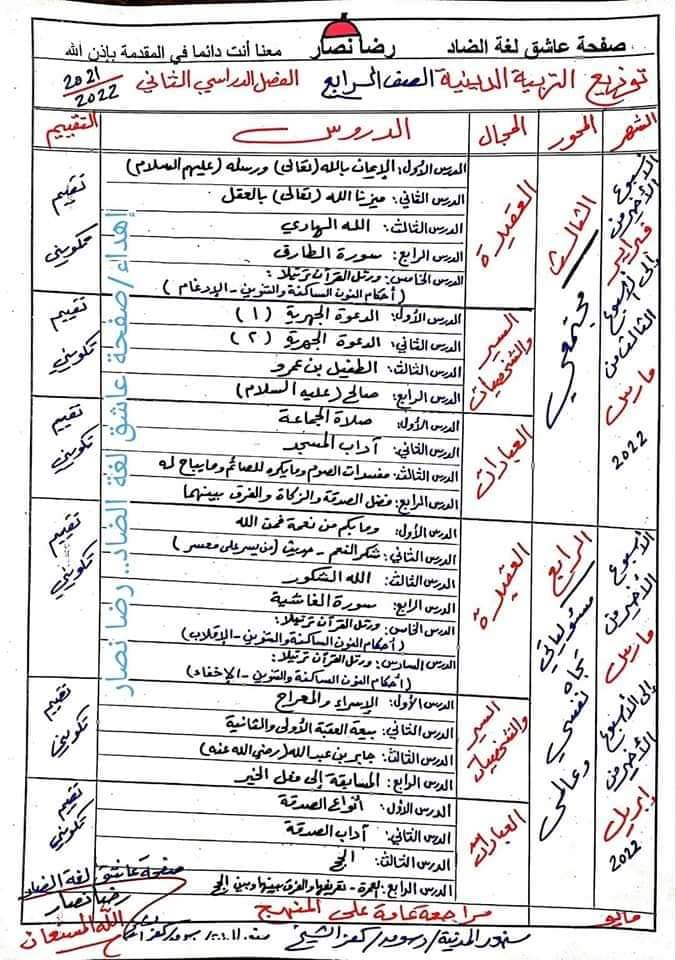 صفحة عاشق لغة الضاد رضا نصار معنا أنت دائما في المقدمة بإذن الله
توزيع التربية الدينية الصف الرابع الفصل الدراسي الثاني 2021 2022
الشهر المحور المجال الدروس التقييم
الأسبوع الأخير من فبراير إلى الأسبوع الثالث من مارس 2022
الثالث مجتمعي
العقيدة
الدرس الأول: الإيمان بالله (تعالى) ورسله (عليهم السلام)
الدرس الثاني: ميزنا الله (تعالى) بالعقل
الدرس الثالث: الله الهادي
الدرس الرابع: سورة الطارق
الدرس الخامس: ورتل القرآن ترتيلا:
(أحكام النون الساكنة والتنوين - الإدغام)
تقييم تكويني
السير والشخصيات
الدرس الأول: الدعوة الجهرية (1)
الدرس الثاني: الدعوة الجهرية (2)
الدرس الثالث: الطفيل بن عمرو
الدرس الرابع: صالح (عليه السلام)
تقييم تكويني
العبادات
الدرس الأول: صلاة الجماعة
الدرس الثاني: آداب المسجد
الدرس الثالث: مفسدات الصوم ومايكره للصائم ومايباح له
الدرس الرابع: فضل الصدقة والزكاة والفرق بينهما
تقييم تكويني
الأسبوع الأخير من مارس إلى الأسبوع الأخير من إبريل 2022
الرابع مسئولياتي تجاه نفسي وعالمي
العقيدة
الدرس الأول: ومابكم من نعمة فمن الله
الدرس الثاني: شكر النعم - حديث (من يسر على معسر)
الدرس الثالث: الله الشكور
الدرس الرابع: سورة الغاشية
الدرس الخامس: ورتل القرآن ترتيلا:
(أحكام النون الساكنة والتنوين - الإقلاب)
الدرس السادس: ورتل القرآن ترتيلا:
(أحكام النون الساكنة والتنوين - الإخفاء)
تقييم تكويني
السير والشخصيات
الدرس الأول: الإسراء والمعراج
الدرس الثاني: بيعة العقبة الأولى والثانية
الدرس الثالث: جابر بن عبدالله (رضي الله عنه)
الدرس الرابع: المسابقة إلى فعل الخير
تقييم تكويني
العبادات
الدرس الأول: أنواع الصدقة
الدرس الثاني: آداب الصدقة
الدرس الثالث: الحج
الدرس الرابع: العمرة - تعريفها والفرق بينها وبين الحج
تقييم تكويني
مايو مراجعة عامة على المنهج
إهداء/صفحة عاشق لغة الضاد.. رضا نصار
صفحة عاشق لغة الضاد
رضا نصار
الله المستعان
سنهور المدينة/دسوق/كفر الشيخ